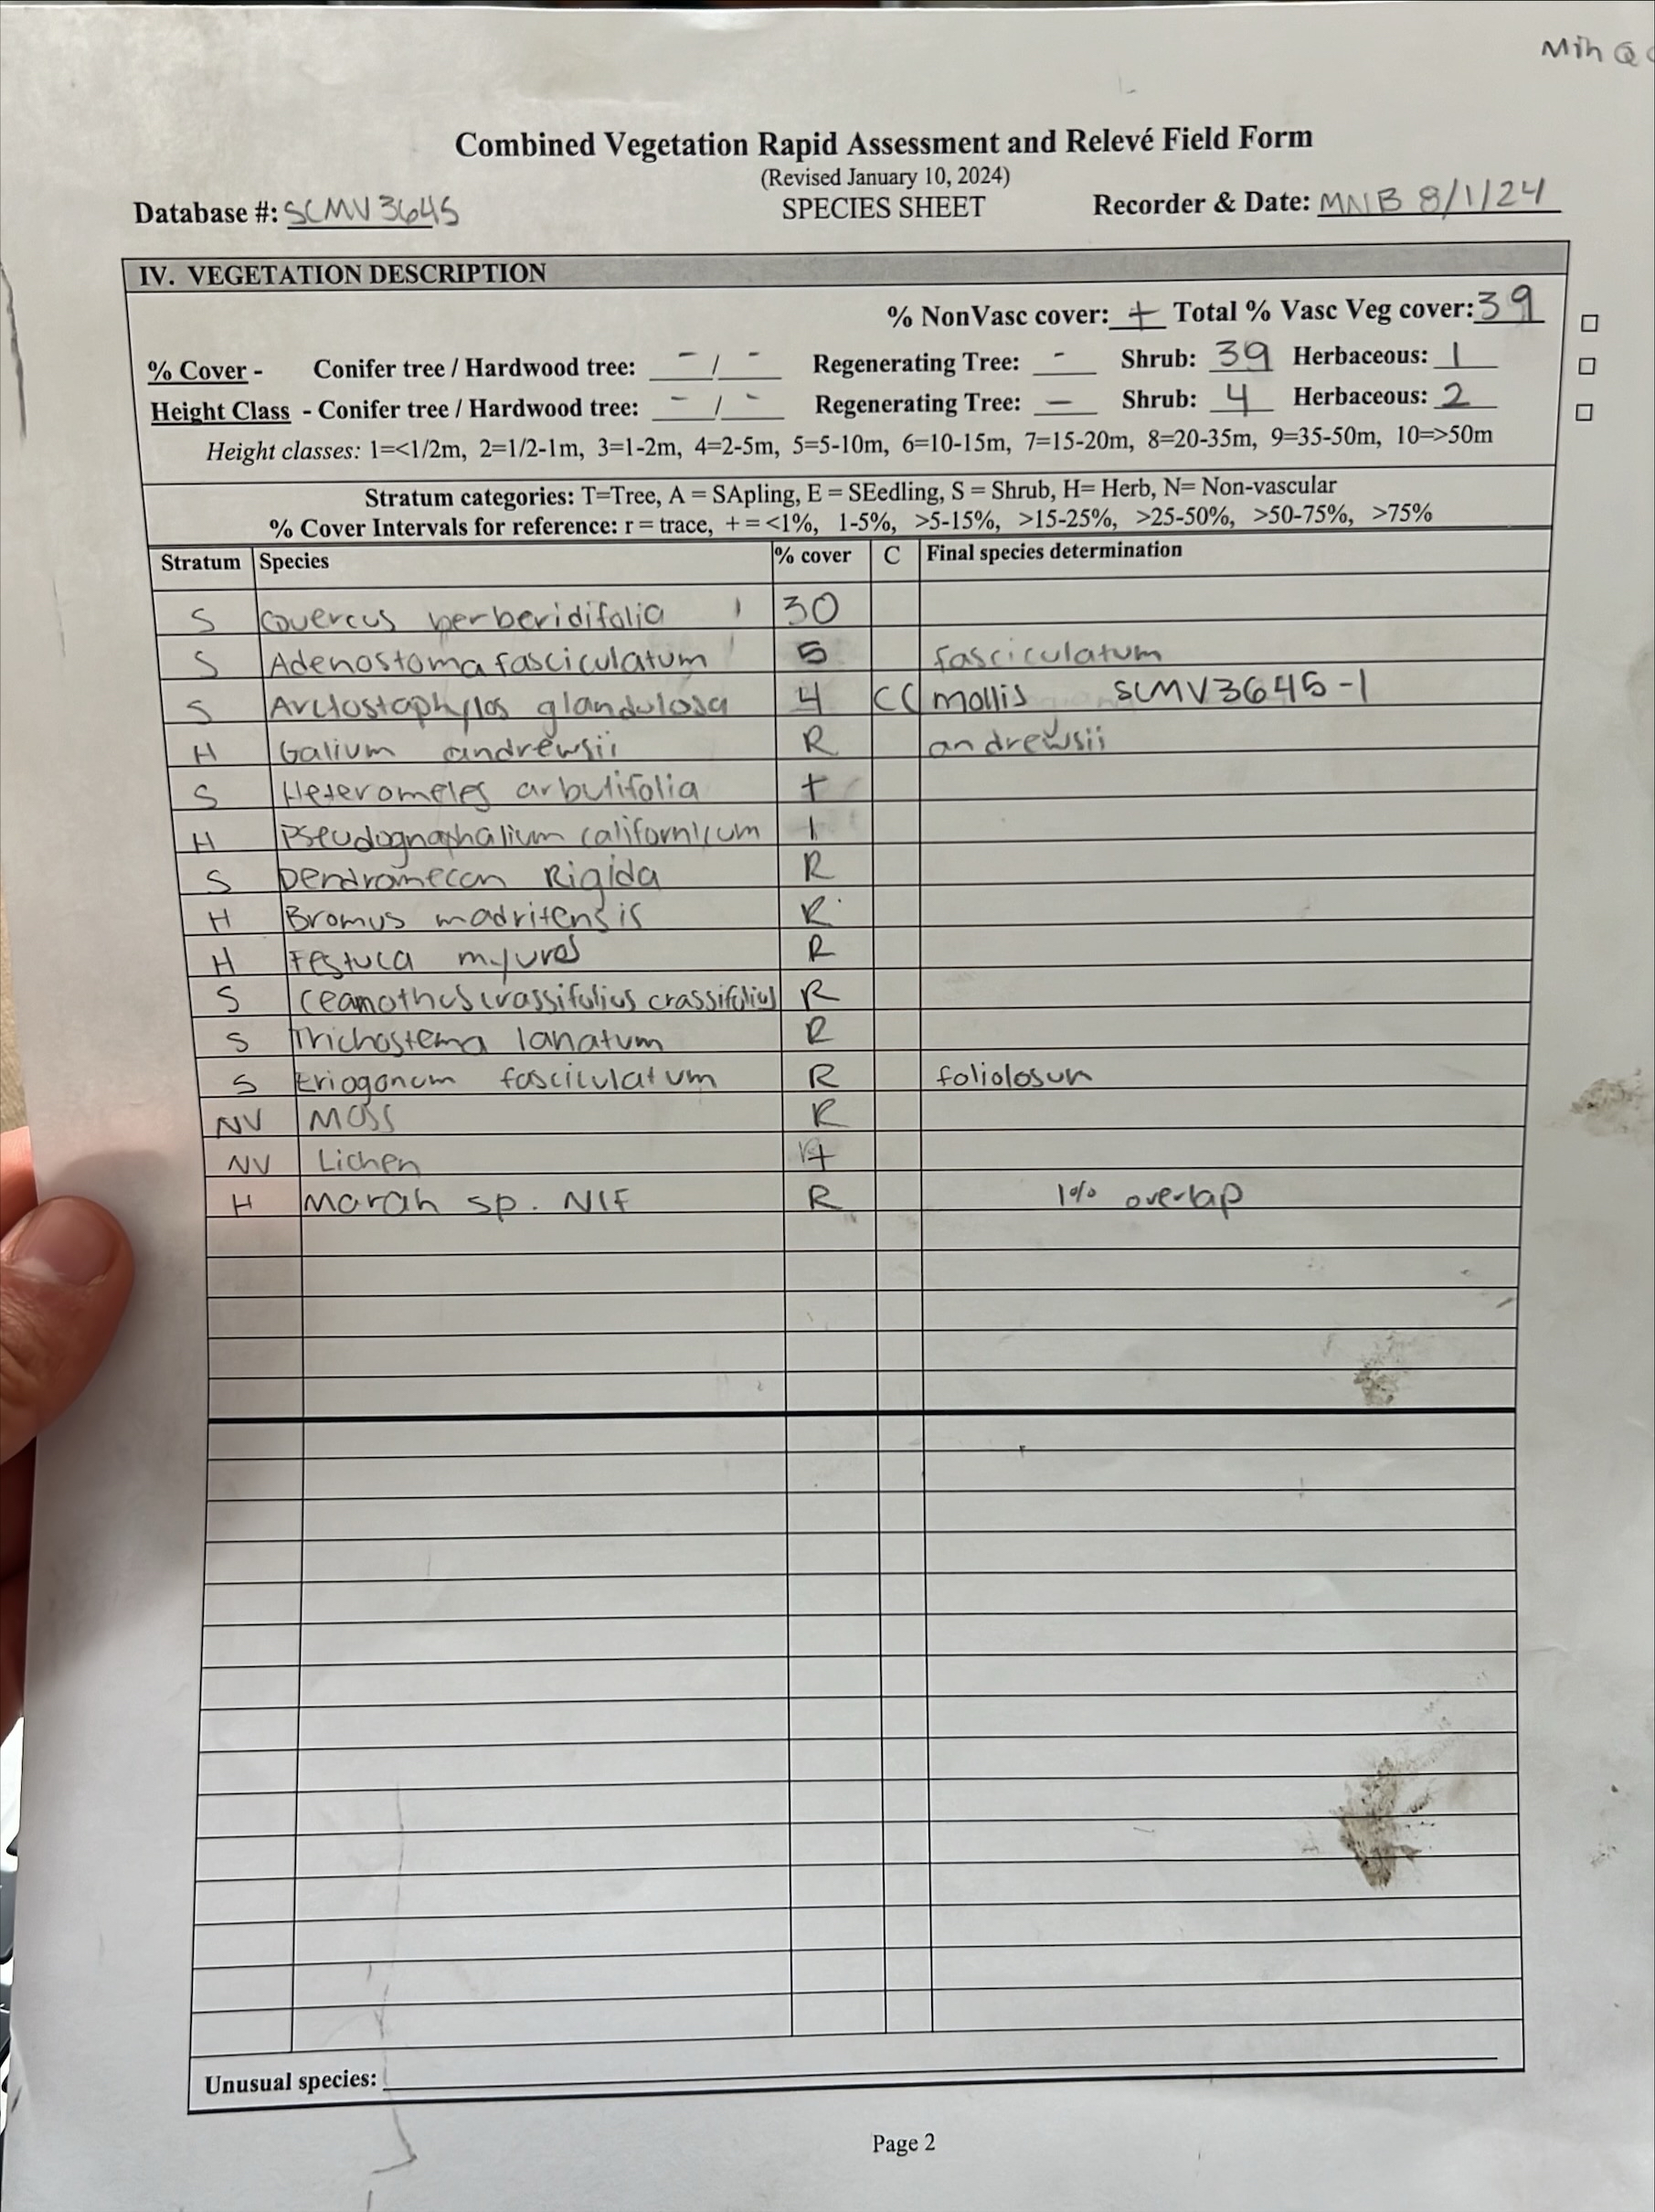 Min Q
Combined Vegetation Rapid Assessment and Relevé Field Form
(Revised January 10, 2024)
Database #: SCMV3645 SPECIES SHEET Recorder & Date: MNB 8/1/24
IV. VEGETATION DESCRIPTION
% NonVasc cover: + Total % Vasc Veg cover: 39
% Cover - Conifer tree / Hardwood tree: - / - Regenerating Tree: - Shrub: 39 Herbaceous: 1
Height Class - Conifer tree / Hardwood tree: - / - Regenerating Tree: - Shrub: 4 Herbaceous: 2
Height classes: 1=<1/2m, 2=1/2-1m, 3=1-2m, 4=2-5m, 5=5-10m, 6=10-15m, 7=15-20m, 8=20-35m, 9=35-50m, 10=>50m
Stratum categories: T=Tree, A = SApling, E = SEedling, S = Shrub, H= Herb, N= Non-vascular
% Cover Intervals for reference: r = trace, + = <1%, 1-5%, >5-15%, >15-25%, >25-50%, >50-75%, >75%
Stratum Species % cover C Final species determination
S Quercus berberidifolia 30
S Adenostoma fasciculatum 5 fasciculatum
S Arctostaphylos glandulosa 4 CC mollis SCMV3645-1
H Galium andrewsii R andrewsii
S Heteromeles arbutifolia +
H Pseudognaphalium californicum 1
S Dendromecon Rigida R
H Bromus madritensis R
H Festuca myuros R
S Ceamothus crassifolius crassifolius R
S Trichostema lanatum R
S Eriogonum fasciculatum R foliolosum
NV Moss R
NV Lichen +
H Marah sp. NIF R 1% overlap
Unusual species:
Page 2